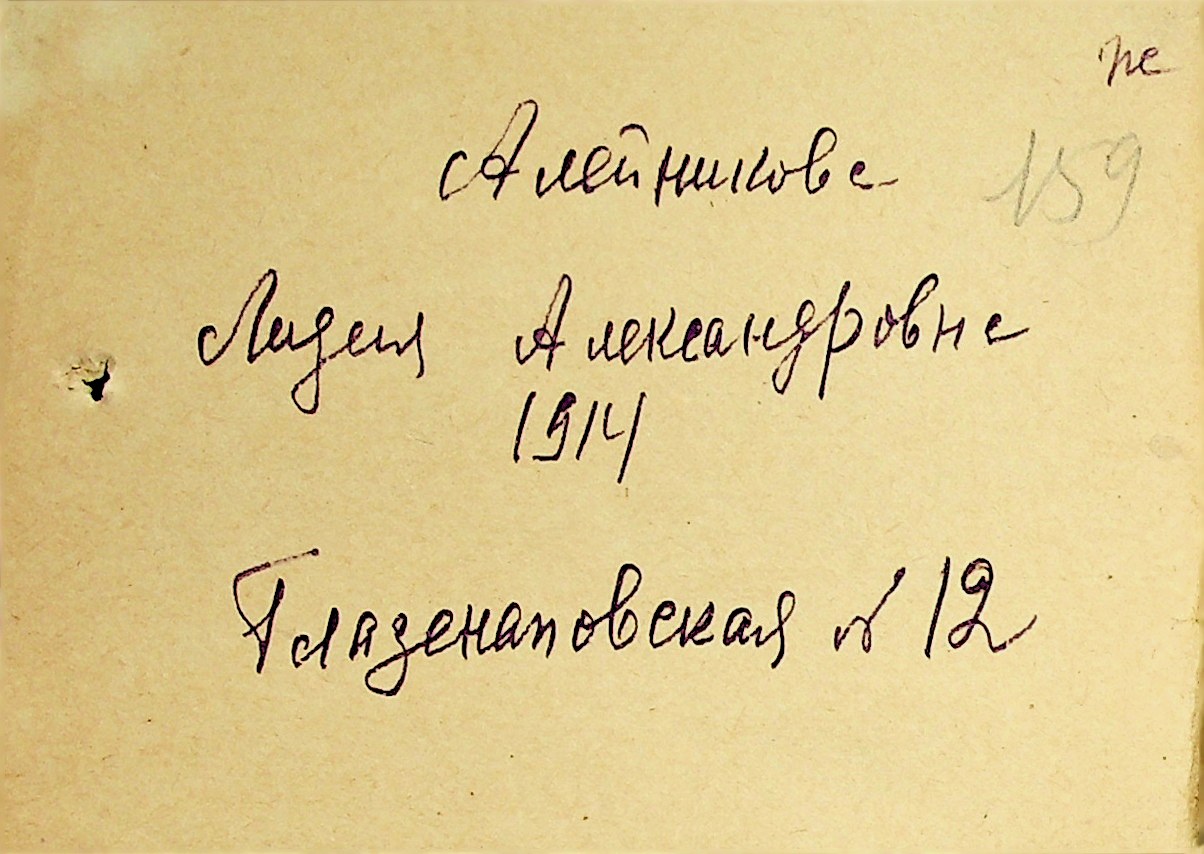 Алейникова
159
Лидия Александровна
1914
Глазенаповская № 12